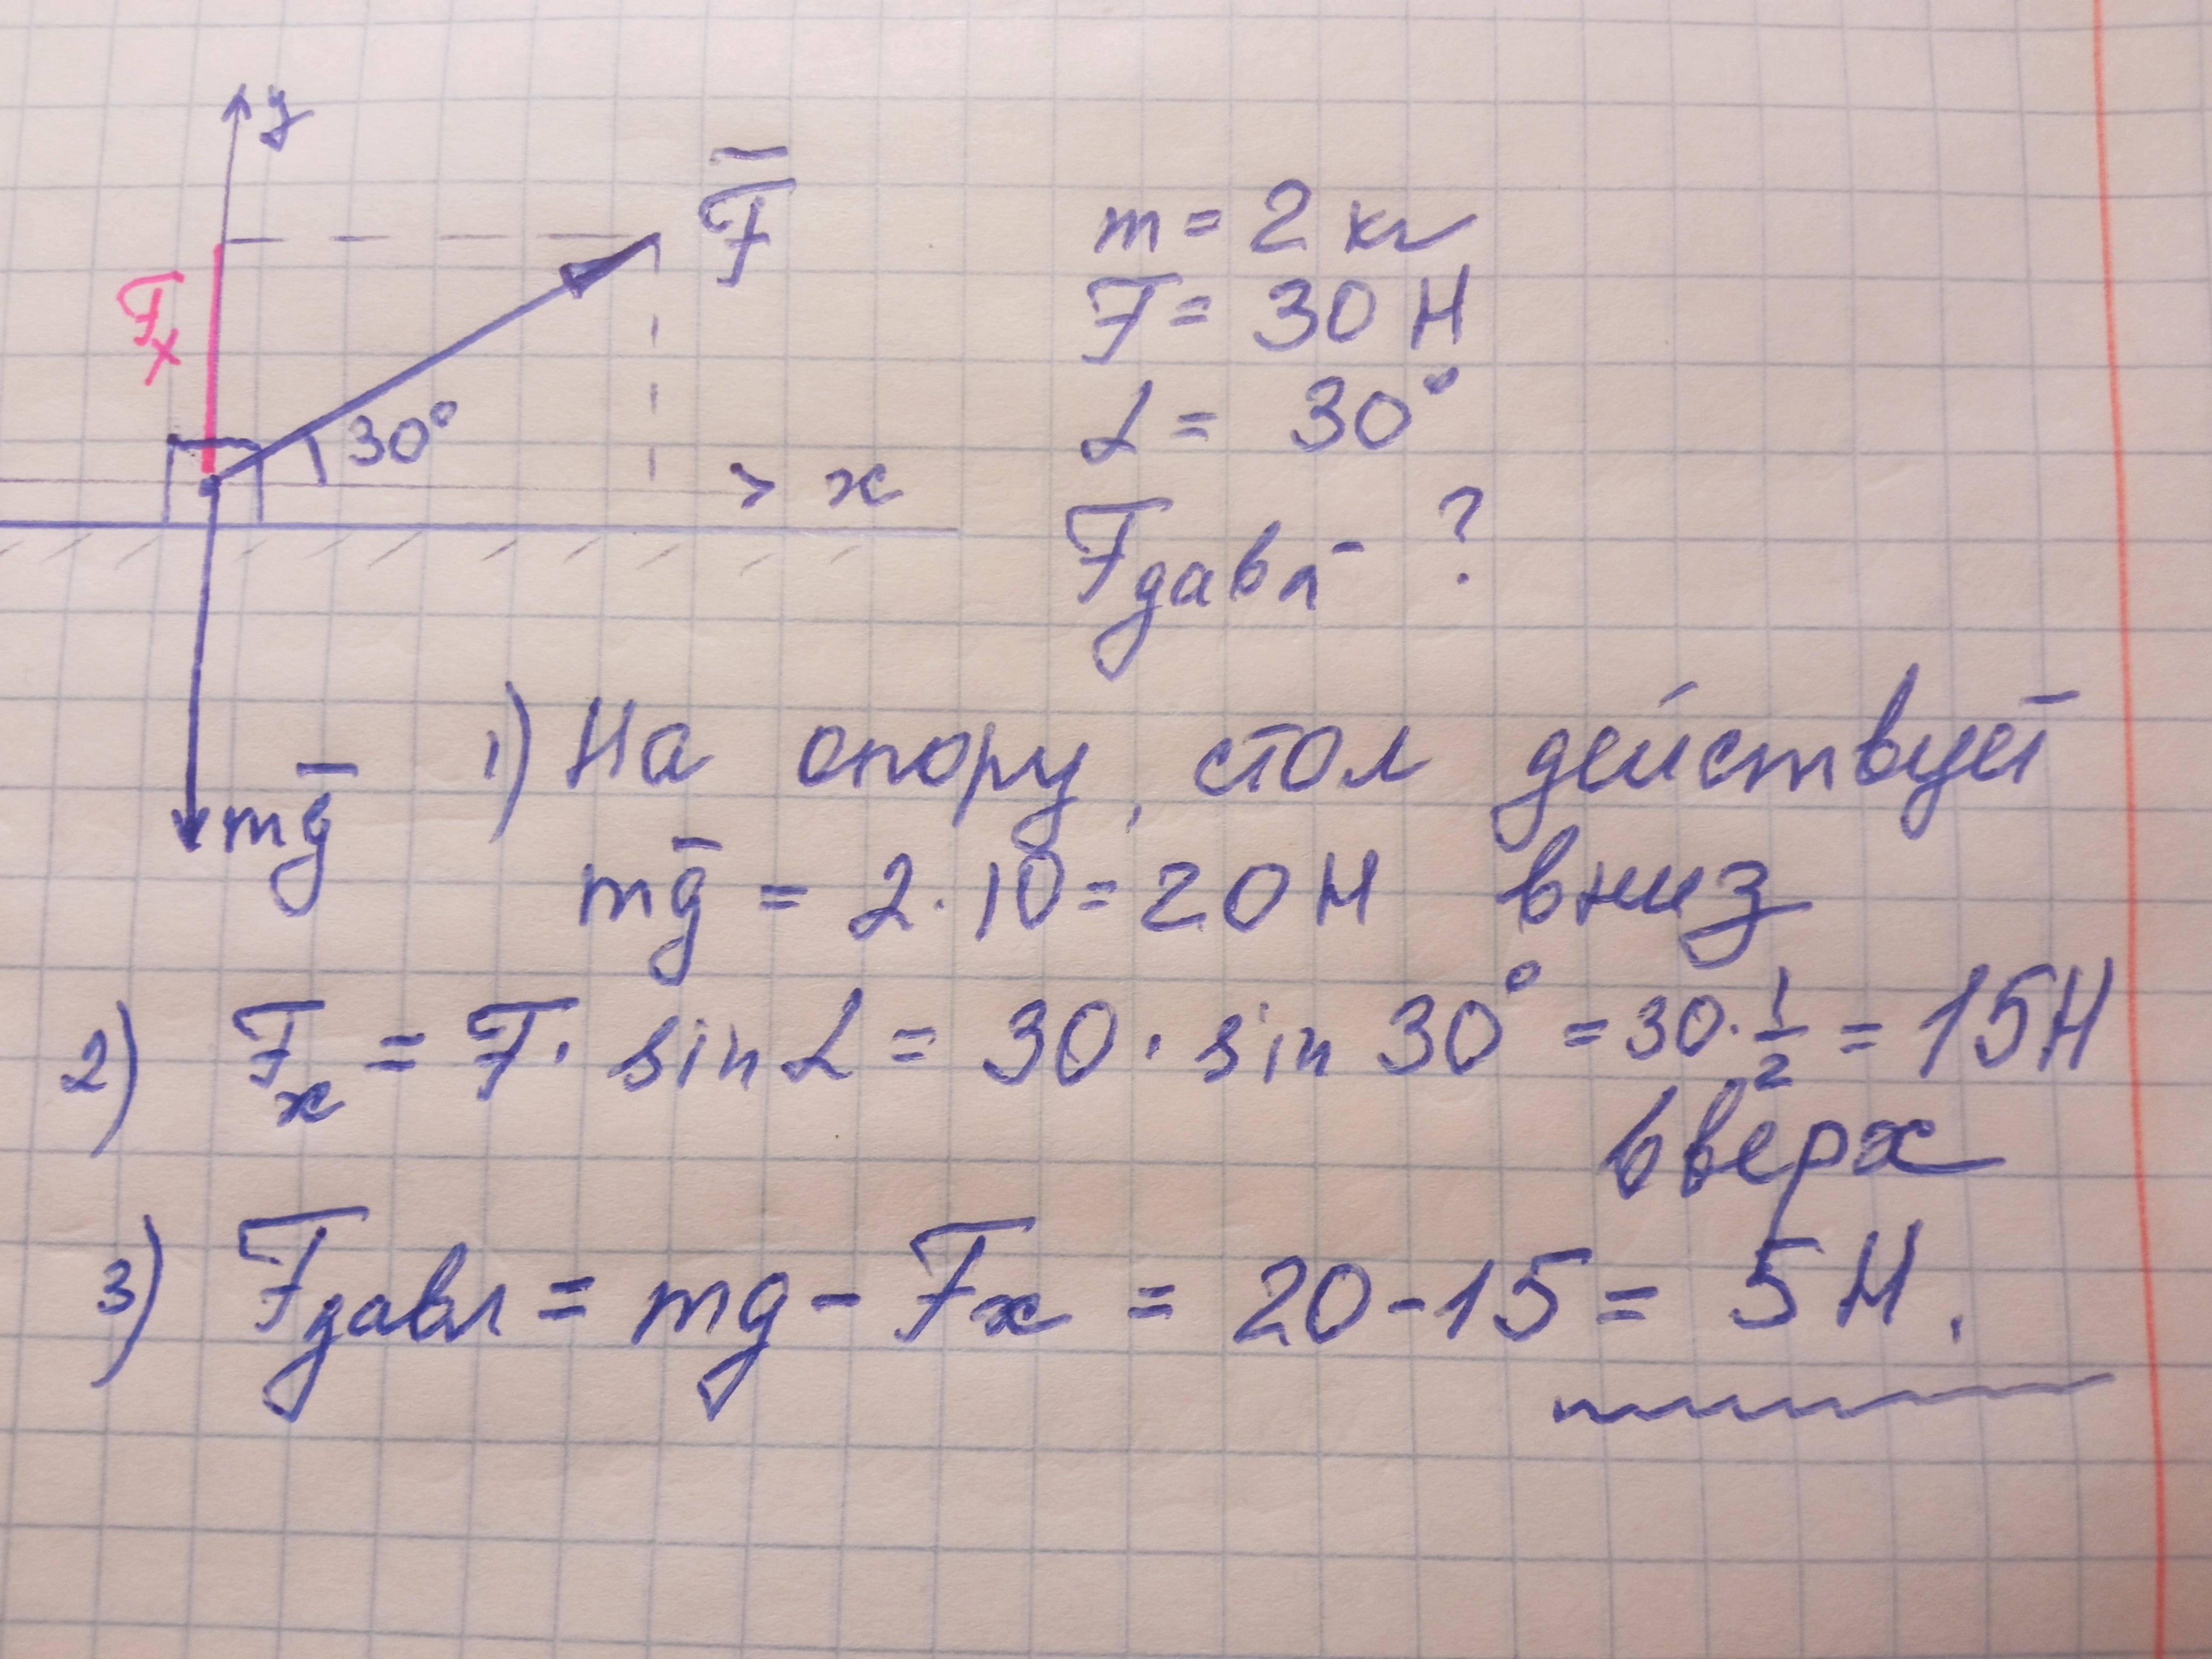 y
F̅
Fx
30°
x
mg̅
m = 2 кг
F = 30 Н
α = 30°
Fдавл - ?
1) На опору, стол действует
mg̅ = 2·10 = 20 Н вниз
2) Fx = F· sin α = 30 · sin 30° = 30·1/2 = 15Н
вверх
3) Fдавл = mg - Fx = 20-15 = 5 Н.